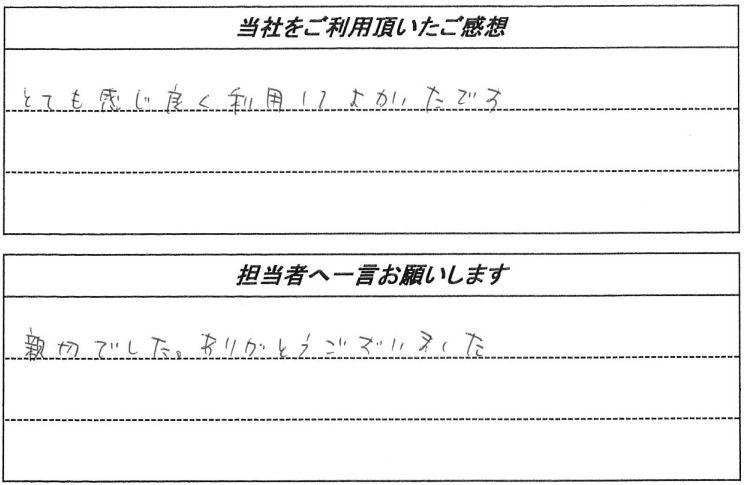 当社をご利用頂いたご感想
とても感じ良く利用してよかったです
担当者へ一言お願いします
親切でした。ありがとうございました